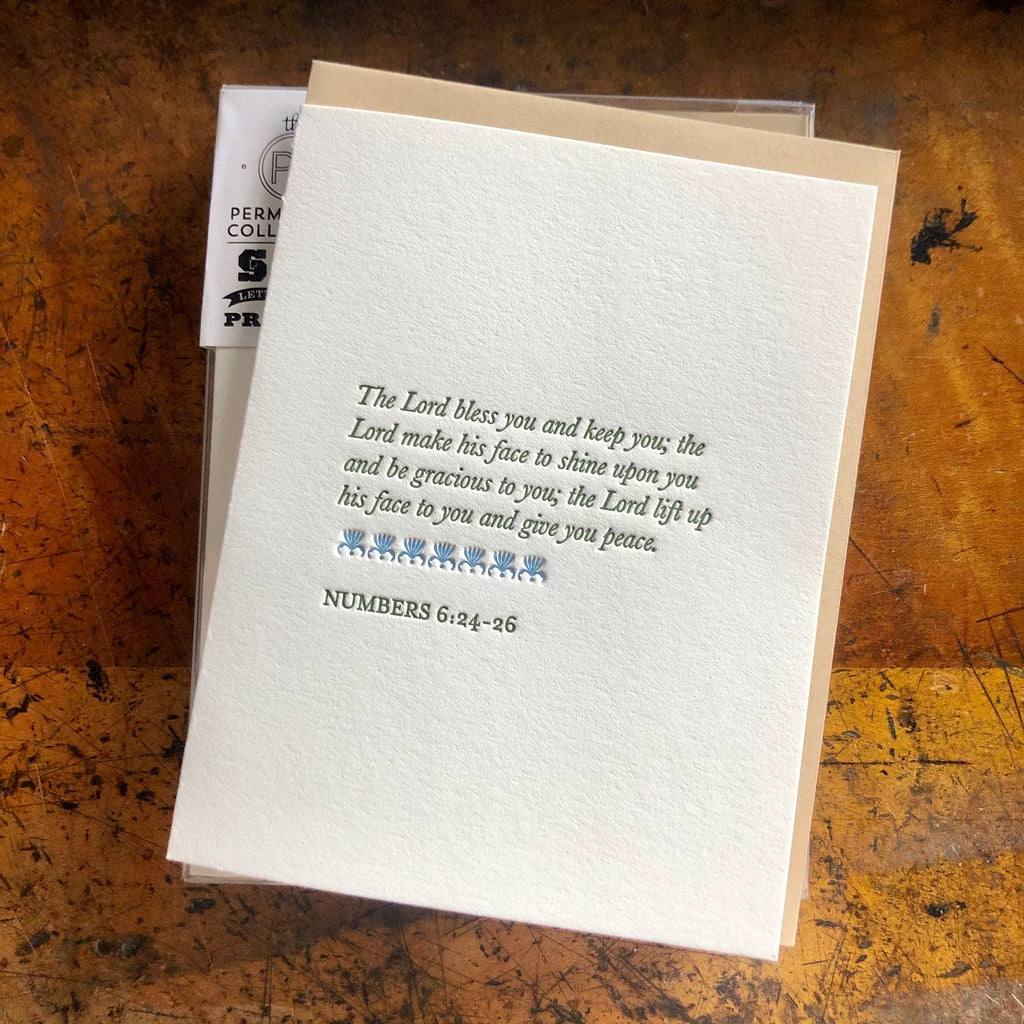 The Lord bless you and keep you; the
Lord make his face to shine upon you
and be gracious to you; the Lord lift up
his face to you and give you peace.
NUMBERS 6:24-26